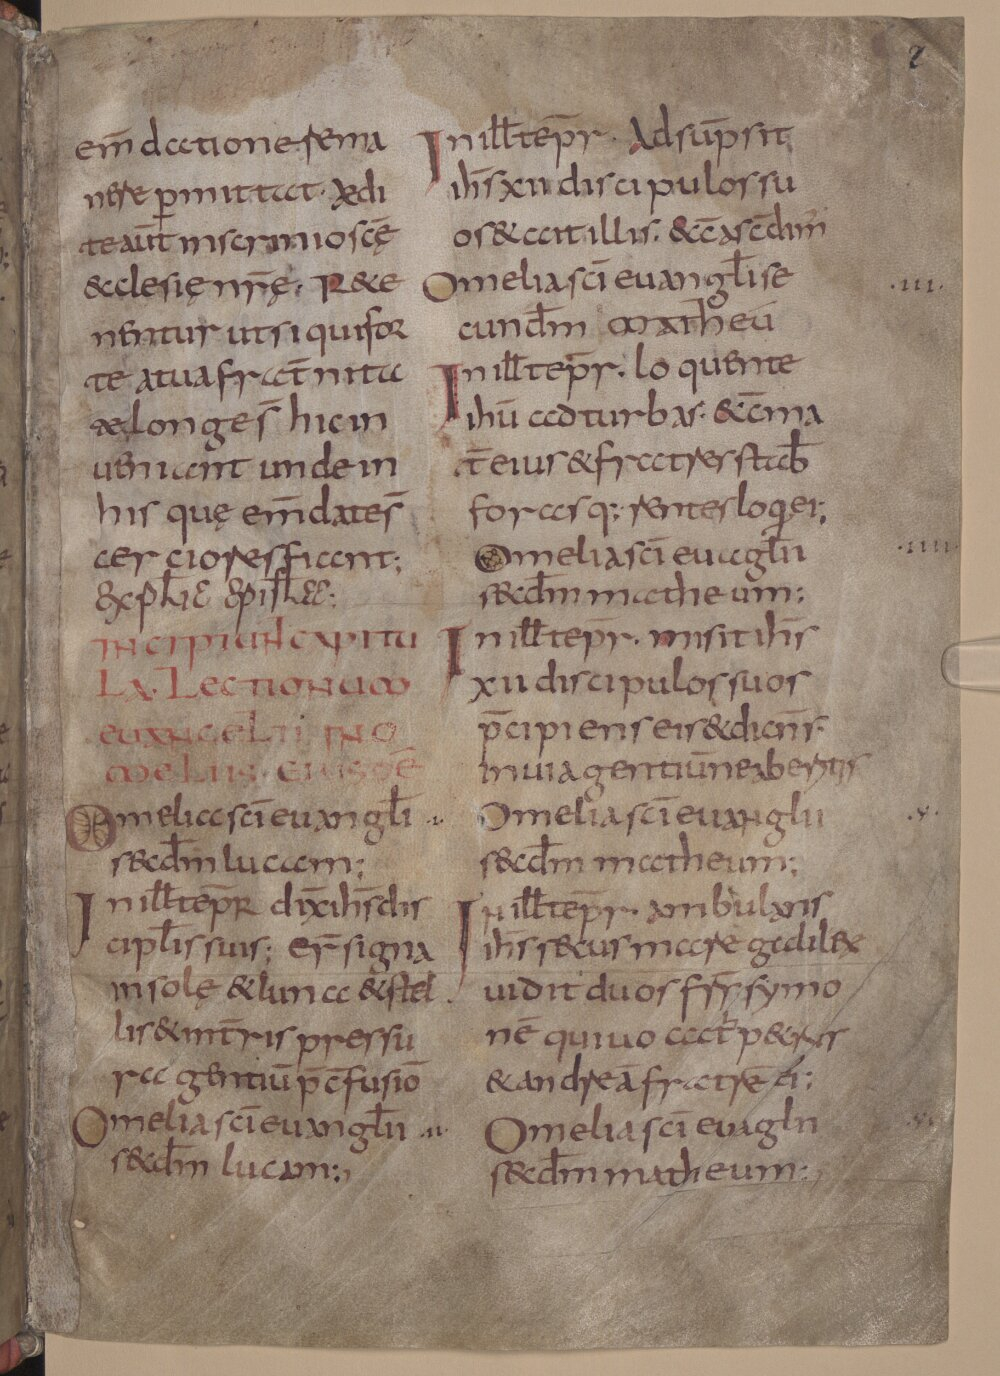 2
em̄dationerema
nere ꝑmittat. Aedi
te aūt inscrinio scę̄
& clesię nrę̄. R&e
nentur ut si qui for
te atua frat̄nita
te longe s̄ hic in
ueniant unde in
his quę em̄date s̄
cer ciores fiant;
Expl̄ic epistl̄a:
INCIPIUNT CAPITU
LA. LECTIONUM
EUANGELII IN O
MELIIS. EIUSDĒ
Omelia sc̄i euangl̄i .ı.
s&cd̄m lucam;
In ill̄ tēpr dix̄ ih̄s dis
cipl̄is suis; er̄ signa
in solę & luna & stel
lis & int̄ris pressu
ra gentiū p̄ c̄fusiō
Omelia sc̄i euangl̄ii .ıı.
s&cd̄m lucam;,
In ill̄ tēpr. Adsūpsit
ih̄s xii discipulos su
os & ait illis. & c̄ ascēdim̄
Omelia sc̄i euangl̄i se .ııı.
cund̄m Matheū
In ill̄ tēpr. loquente
ihū ad turbas. & c̄ ma
t̄ eius & fratres stab̄
foras q; rentes loqi ei;
Omelia sc̄i euagl̄ii .ıııı.
s&cd̄m matheum;
In ill̄ tēpr. misit ih̄s
xii discipulos suos
p̄cipiens eis & dicn̄s.
in uia gentiū ne abieritis
Omelia sc̄i euanglii .v.
s&cd̄m matheum;
In ill̄ tēpr. ambulans
ih̄s secus mare galileae
uidit duos frr̄ symo
nē qui uocat̄ p&rus
& andreā fratrē ei;
Omelia sc̄i euaglii .vı.
s&cd̄m matheum;